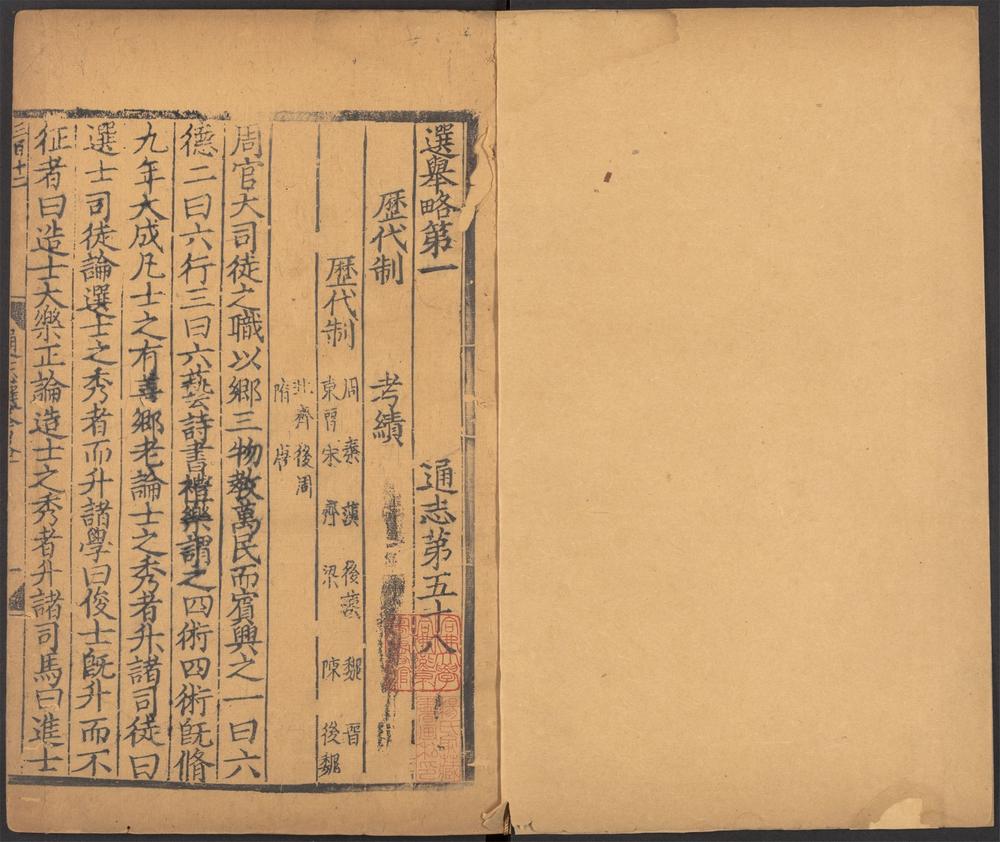 選舉略第一　通志第五十八
歷代制　考績
歷代制　周　秦　漢　後漢　魏　晉
東晉　宋　齊　梁　陳　後魏
北齊　後周
隋　唐
周官大司徒之職以鄉三物教萬民而賓興之一曰六
德二曰六行三曰六藝詩書禮樂謂之四術四術既脩
九年大成凡士之有善鄉老論士之秀者升諸司徒曰
選士司徒論選士之秀者而升諸學曰俊士既升而不
征者曰造士大樂正論造士之秀者升諸司馬曰進士
三百十二